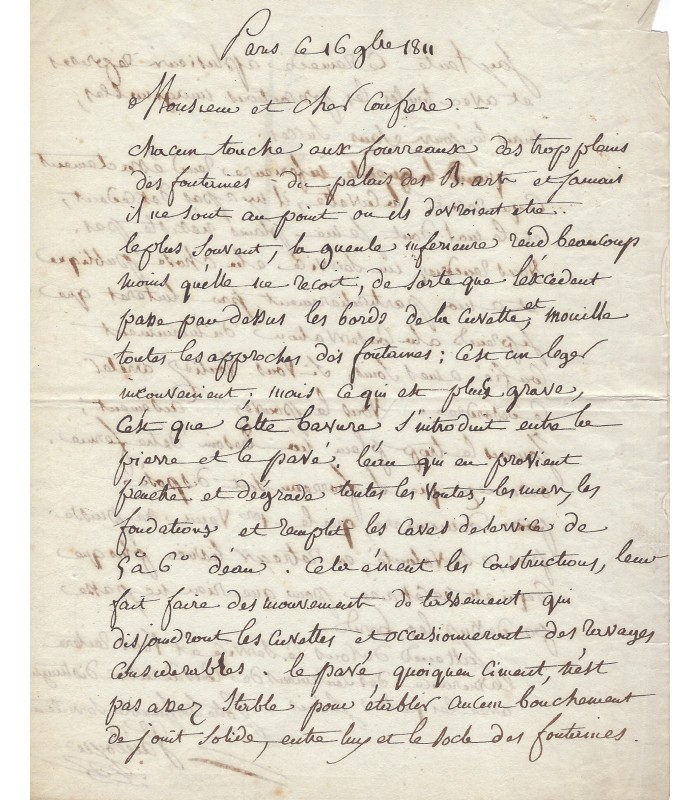 Paris ce 16 9bre 1811
Monsieur et cher Confrere.
chacun touche aux fourreaux des trop pleins
des fontaines du palais des B. arts et jamais
il ne sont au point ou ils devroient etre.
le plus souvent, la gueule inferieure rend beaucoup
moins qu'elle ne recoit, de sorte que l'excédent
passe par dessus les bords de la cuvette, et mouille
toutes les approches des fontaines ; c'est un leger
inconvenient ; mais ce qui est plus grave,
c'est que cette bavure s'introduit entre la
pierre et le pavé. l'eau qui en provient
pénetre et dégrade toutes les voutes, les murs, les
fondations et remplit les caves de service de
5 à 6° d'eau. Cela ément les constructions, leur
fait faire des mouvement de tassement qui
disjoindront les cuvettes et occasionneront des ravages
considerables. le pavé quoiqu'en ciment, n'est
pas assez stable pour établir aucun bouchement
de joint solide, entre luy et le socle des fontaines.